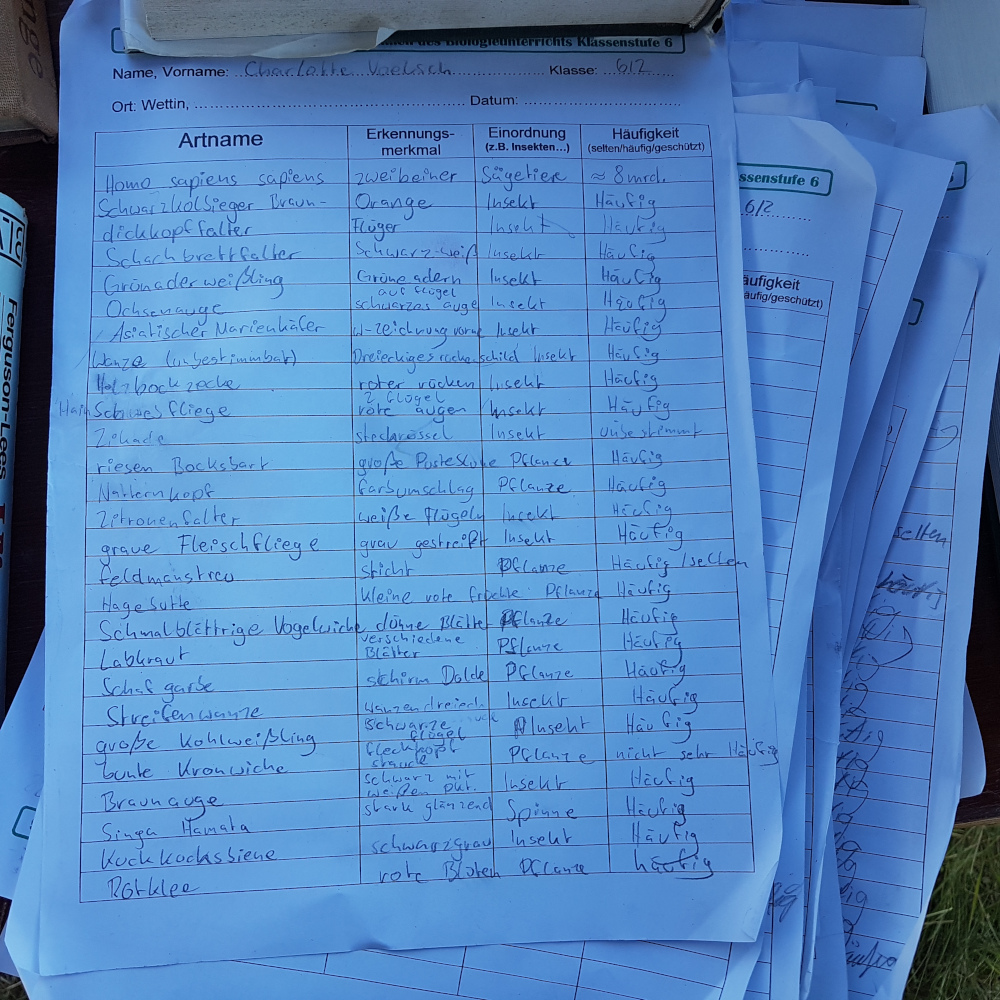 des Biologieunterrichts Klassenstufe 6
Name, Vorname: Charlotte Klasse: 6/2
Ort: Wettin, Datum:
Artname Erkennungs-merkmal Einordnung (z.B. Insekten...) Häufigkeit (selten/häufig/geschützt)
Homo sapiens sapiens zweibeiner Sägetiere ≈ 8 mrd.
Schwarzkolbieger Braun- Orange Insekt Häufig
dickkopffalter Flüger Insekt Häufig
Schachbrettfalter Schwarz-weiß Insekt Häufig
Grünaderweißling Grüne adern auf flügel Insekt Häufig
Ochsenauge schwarzes auge Insekt Häufig
Asiatischer Marienkäfer w-zeichnung vorne Insekt Häufig
Wanze (unbestimmbar) Dreieckiges rückenschild Insekt Häufig
Holzbockzecke roter rücken Insekt Häufig
Hain Schwebfliege 2 flügel rote augen Insekt Häufig
Zikade stechrüssel Insekt unbestimmt
riesen Bocksbart große Pusteblume Pflanze Häufig
Natternkopf farbumschlag Pflanze Häufig
Zitronenfalter weiße Flügeln Insekt Häufig
graue Fleischfliege grau gestreift Insekt Häufig
feldmanstreu sticht Pflanze Häufig/selten
Hagebutte kleine rote früchte Pflanze Häufig
Schmalblättrige Vogelwicke dünne Blätter Pflanze Häufig
Labkraut verschiedene Blätter Pflanze Häufig
Schafgarbe schirm Dolde Pflanze Häufig
Streifenwanze wanzendreieck Insekt Häufig
große Kohlweißling Schwarze flügel Insekt Häufig
bunte Kronwiche Pflanze nicht sehr Häufig
Braunauge schwarz mit weißen pūt. Insekt Häufig
Singa Hamata stark glänzend Spinne Häufig
Kuckkocksbiene schwarzgrau Insekt Häufig
Rotklee rote Blüten Pflanze häufig
ssenstufe 6
6/2
äufigkeit
äufig/geschützt)
selten
Ferguson-Lees